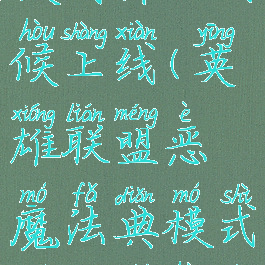 hòu shàng xiàn yīng
候上线(英
xióng lián méng è
雄联盟恶
mó fǎ diǎn mó shì
魔法典模式